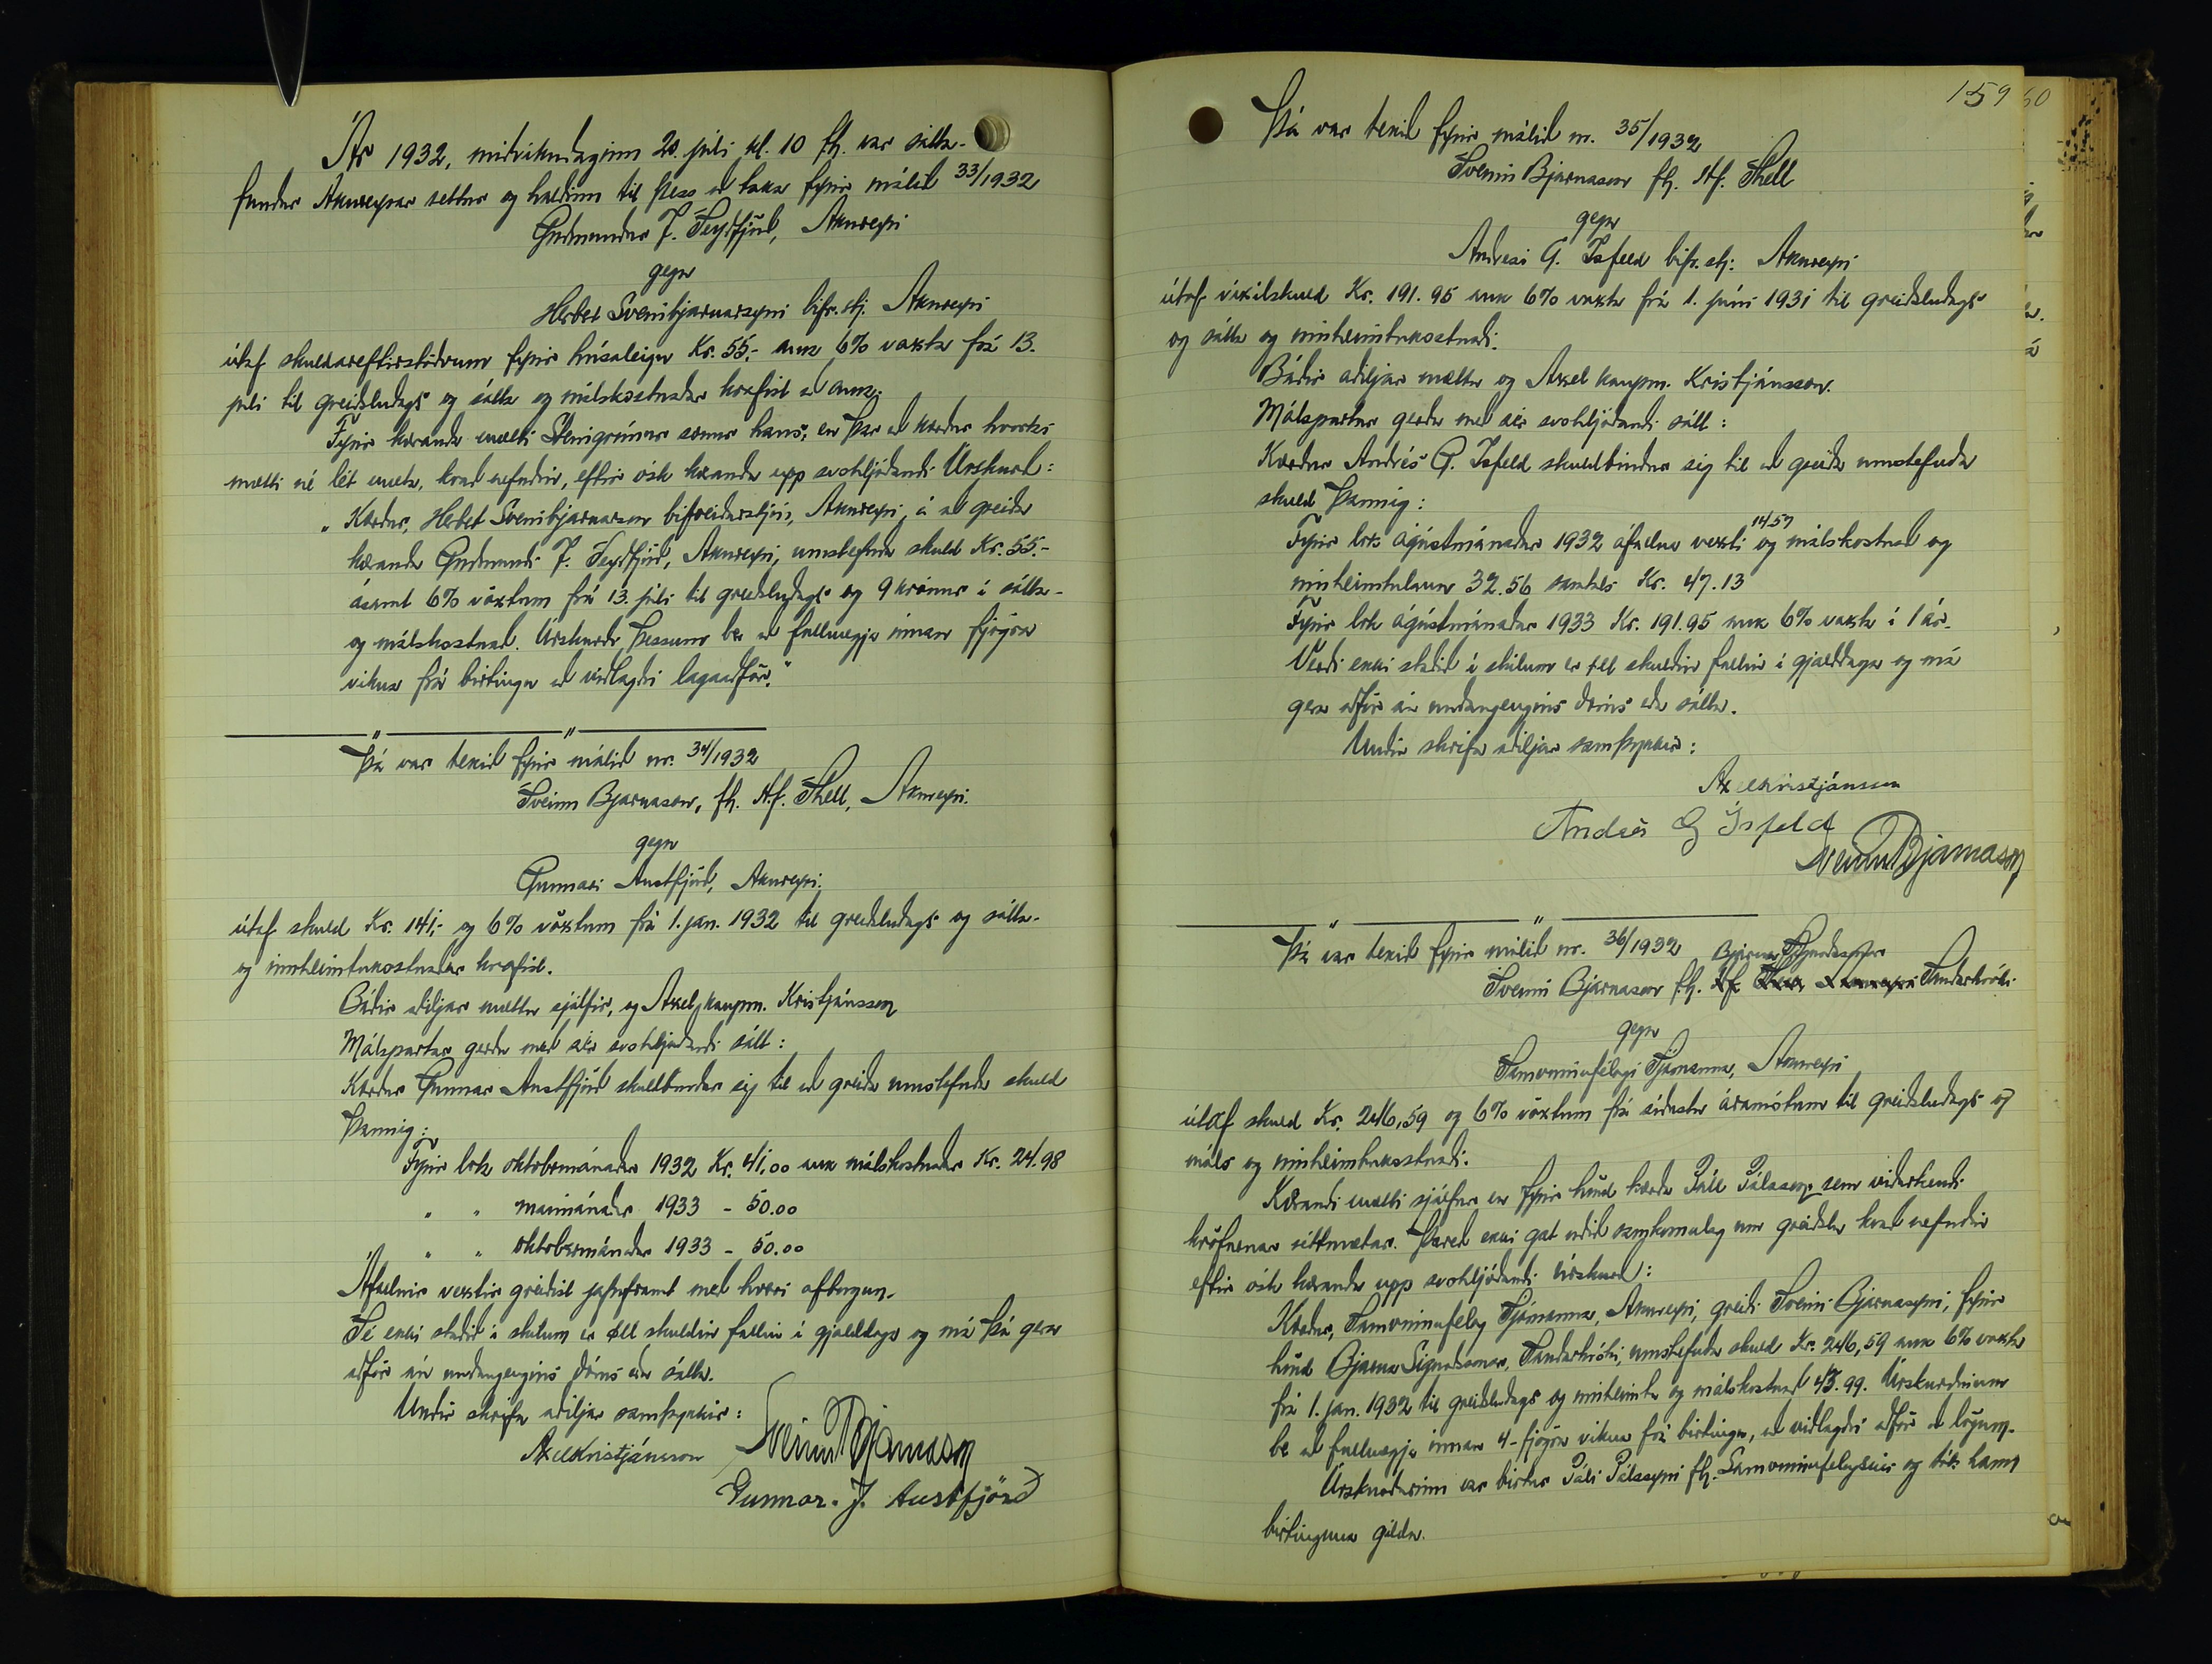 Ár 1932, miðvikudaginn 20. júlí kl. 10 fh. var sátta-
fundur Akureyrar settur og haldinn til þess að taka fyrir málið 33/1932
Guðmundur J. Seyðfjörð, Akureyri
gegn
Herbert Sveinbjarnarsyni bifr.stj. Akureyri
útaf skuldareftirstöðvum fyrir húsaleigu Kr. 55,- auk 6% vaxta frá 13.
júlí til greiðsludags og sátta og málskostnaðar krafist að auki.
Fyrir kæranda mætti Steingrímur sonur hans, en þar eð kærður hvorki
mætti né lét mæta, kvað nefndin, eftir ósk kæranda upp svohljóðandi Úrskurð:
„Kærður, Herbert Sveinbjarnarson bifreiðarstjóri, Akureyri, á að greiða
kæranda Guðmundi J. Seyðfjörð, Akureyri, umstefnda skuld Kr. 55.-
ásamt 6% vöxtum frá 13. júlí til greiðsludags og 9 krónur í sátta-
og málskostnað. Úrskurði þessum ber að fullnægja innan fjögra
vikna frá birtingu að viðlagðri lagaaðför."
Þá var tekið fyrir málið nr. 34/1932
Sveinn Bjarnason, fh. H.f. Shell, Akureyri.
gegn
Gunnari Austfjörð, Akureyri.
útaf skuld Kr. 141,- og 6% vöxtum frá 1. jan. 1932 til greiðsludags og sátta-
og innheimtukostnaðar krafist.
Báðir aðiljar mættu sjálfir, og Axel kaupm. Kristjánsson
Málspartar gerðu með sér svohljóðandi sátt:
Kærður Gunnar Austfjörð skuldbindur sig til að greiða umstefnda skuld
þannig:
Fyrir lok októbermánaðar 1932 Kr. 41,00 auk málskostnaðar Kr. 24.98
" " maímánaðar 1933 - 50.00
" " októbermánaðar 1933 - 50.00
Áfallnir vextir greiðist jafnframt með hverri afborgun.
Sé ekki staðið í skilum er öll skuldin fallin í gjalddaga og má þá gera
aðför án undangengins dóms eða sátta.
Undir skrifa aðiljar samþykkir:
Axel Kristjánsson Sveinn Bjarnason
Gunnar. J. Austfjörð
159
60
Þá var tekið fyrir málið nr. 35/1932
Sveinn Bjarnason fh. H.f. Shell
gegn
Andrési G. Ísfeld bifr. stj. Akureyri
útaf víxilskuld Kr. 191.95 auk 6% vaxta frá 1. júní 1931 til greiðsludags
og sátta og innheimtukostnaði.
Báðir aðiljar mættu og Axel kaupm. Kristjánsson.
Málspartar gerðu með sér svohljóðandi sátt:
Kærður Andrés G. Ísfeld skuldbindur sig til að greiða umstefnda
skuld þannig:
Fyrir lok ágústmánaðar 1932 áfallna vexti 14.57 og málskostnað og
innheimtulaun 32.56 samtals Kr. 47.13
Fyrir lok ágústmánaðar 1933 Kr. 191.95 auk 6% vaxta í 1 ár.
Verði ekki staðið í skilum er öll skuldin fallin í gjalddaga og má
gera aðför án undangengins dóms eða sátta.
Undir skrifa aðiljar samþykkir:
Axel Kristjánsson
Andrés G Ísfeld
Sveinn Bjarnason
Þá var tekið fyrir málið nr. 36/1932 Bjarna Sigurðssonar
Sveinn Bjarnason f.h. Sauðárkróki
gegn
Samvinnufélagi Sjómanna, Akureyri
útaf skuld Kr. 246,59 og 6% vöxtum frá síðustu áramótum til greiðsludags og
máls og innheimtukostnaði.
Kærandi mætti sjálfur en fyrir hönd kærða Páll Pálsson sem viðurkendi
kröfurnar réttmætar. Þareð ekki gat orðið samkomulag um greiðslu kvað nefndin
eftir ósk kæranda upp svohljóðandi úrskurð:
Kærður, Samvinnufélag Sjómanna, Akureyri, greiði Sveini Bjarnasyni, fyrir
hönd Bjarna Sigurðssonar, Sauðárkróki, umstefnda skuld Kr. 246,59 auk 6% vaxta
frá 1. jan. 1932 til greiðsludags og innheimtu og málskostnað 43.99. Úrskurðinum
ber að fullnægja innan 4-fjögra vikna frá birtingu, að viðlagðri aðför að lögum.
Úrskurðurinn var birtur Páli Pálssyni fh. Samvinnufélagsins og tók hann
birtinguna gilda.